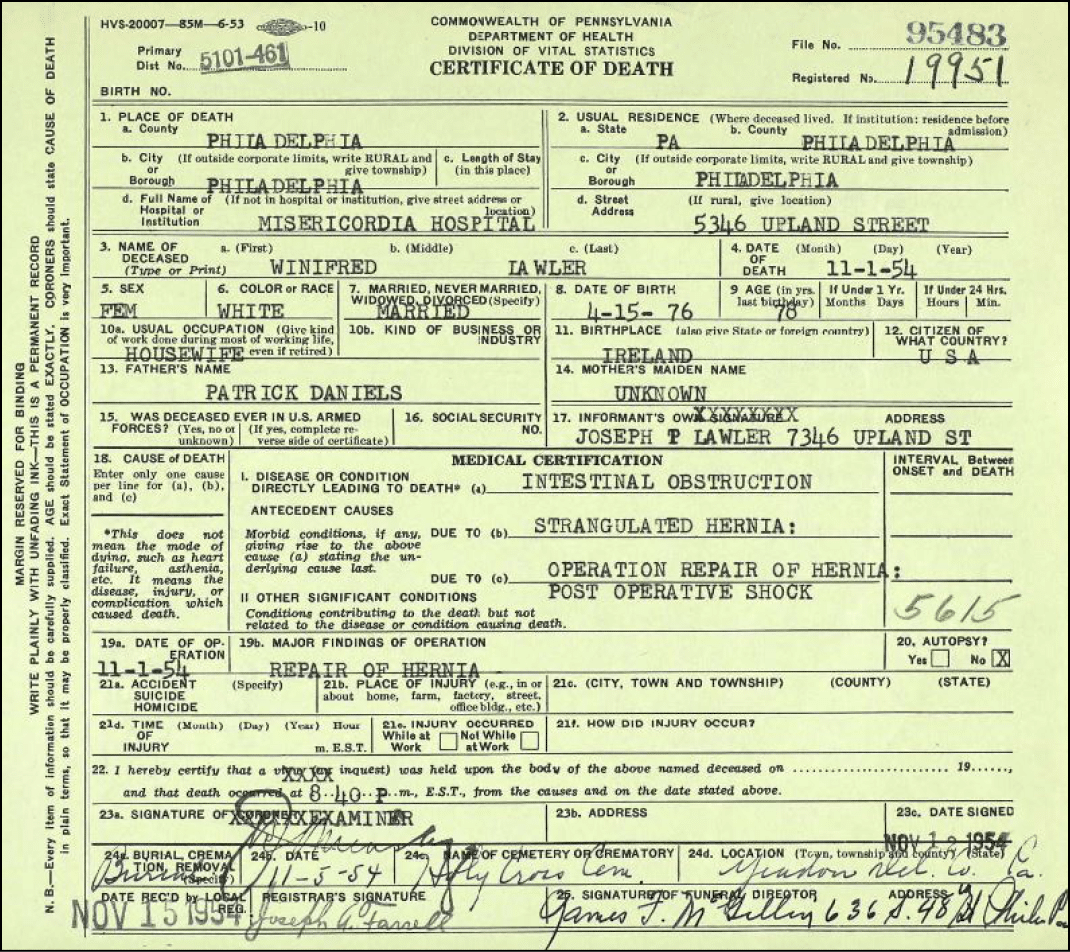 HVS-20007—85M—6-53 -10
COMMONWEALTH OF PENNSYLVANIA
DEPARTMENT OF HEALTH
DIVISION OF VITAL STATISTICS
CERTIFICATE OF DEATH
Primary
Dist No. 5101-461
File No. 95483
Registered No. 19951
BIRTH NO.
1. PLACE OF DEATH
a. County
PHILADELPHIA
b. City (If outside corporate limits, write RURAL and
or give township)
Borough PHILADELPHIA
c. Length of Stay
(in this place)
d. Full Name of (If not in hospital or institution, give street address or
Hospital or location)
Institution MISERICORDIA HOSPITAL
2. USUAL RESIDENCE (Where deceased lived. If institution: residence before
a. State b. County admission)
PA PHILADELPHIA
c. City (If outside corporate limits, write RURAL and give township)
or
Borough PHILADELPHIA
d. Street (If rural, give location)
Address
5346 UPLAND STREET
3. NAME OF a. (First) b. (Middle) c. (Last)
DECEASED
(Type or Print) WINIFRED LAWLER
4. DATE (Month) (Day) (Year)
OF
DEATH 11-1-54
5. SEX
FEM
6. COLOR or RACE
WHITE
7. MARRIED, NEVER MARRIED,
WIDOWED, DIVORCED (Specify)
MARRIED
8. DATE OF BIRTH
4-15- 76
9 AGE (in yrs.
last birthday)
78
If Under 1 Yr.
Months Days
If Under 24 Hrs.
Hours Min.
10a. USUAL OCCUPATION (Give kind
of work done during most of working life,
HOUSEWIFE even if retired)
10b. KIND OF BUSINESS OR
INDUSTRY
11. BIRTHPLACE (also give State or foreign country)
IRELAND
12. CITIZEN OF
WHAT COUNTRY?
U S A
13. FATHER'S NAME
PATRICK DANIELS
14. MOTHER'S MAIDEN NAME
UNKNOWN
15. WAS DECEASED EVER IN U.S. ARMED
FORCES? (Yes, no or (If yes, complete re-
unknown) verse side of certificate)
16. SOCIAL SECURITY
NO.
17. INFORMANT'S OWN SIGNATURE XXXXXXXX ADDRESS
JOSEPH P LAWLER 7346 UPLAND ST
18. CAUSE OF DEATH
Enter only one cause
per line for (a), (b),
and (c)
*This does not
mean the mode of
dying, such as heart
failure, asthenia,
etc. It means the
disease, injury, or
complication which
caused death.
MEDICAL CERTIFICATION
I. DISEASE OR CONDITION
DIRECTLY LEADING TO DEATH* (a) INTESTINAL OBSTRUCTION
ANTECEDENT CAUSES
Morbid conditions, if any, DUE TO (b) STRANGULATED HERNIA:
giving rise to the above
cause (a) stating the un-
derlying cause last.
DUE TO (c) OPERATION REPAIR OF HERNIA:
II OTHER SIGNIFICANT CONDITIONS POST OPERATIVE SHOCK
Conditions contributing to the death but not
related to the disease or condition causing death.
INTERVAL Between
ONSET and DEATH
5615
19a. DATE OF OP-
ERATION
11-1-54
19b. MAJOR FINDINGS OF OPERATION
REPAIR OF HERNIA
20. AUTOPSY?
Yes No X
21a. ACCIDENT (Specify)
SUICIDE
HOMICIDE
21b. PLACE OF INJURY (e.g., in or
about home, farm, factory, street,
office bldg., etc.)
21c. (CITY, TOWN AND TOWNSHIP) (COUNTY) (STATE)
21d. TIME (Month) (Day) (Year) Hour
OF
INJURY m. E.S.T.
21e. INJURY OCCURRED
While at Not While
Work at Work
21f. HOW DID INJURY OCCUR?
22. I hereby certify that a view (an inquest) was held upon the body of the above named deceased on .......... 19......,
XXXX
and that death occurred at 8 40 P m., E.S.T., from the causes and on the date stated above.
23a. SIGNATURE OF CORONER
EXAMINER
23b. ADDRESS
23c. DATE SIGNED
NOV 12 1954
24a. BURIAL, CREMA-
TION, REMOVAL
(Specify)
Burial
24b. DATE
11-5-54
24c. NAME OF CEMETERY OR CREMATORY
Holy Cross Cem.
24d. LOCATION (Town, township and county) (State)
Yeadon Del. Co. Pa.
DATE REC'D by LOCAL
REG.
NOV 15 1954
REGISTRAR'S SIGNATURE
Joseph A. Farrell
25. SIGNATURE OF FUNERAL DIRECTOR ADDRESS
James F. McGillin 636 S. 48 St Phila Pa
MARGIN RESERVED FOR BINDING
WRITE PLAINLY WITH UNFADING INK—THIS IS A PERMANENT RECORD
N. B.—Every item of information should be carefully supplied. AGE should be stated EXACTLY. CORONERS should state CAUSE OF DEATH
in plain terms, so that it may be properly classified. Exact Statement of OCCUPATION is very important.